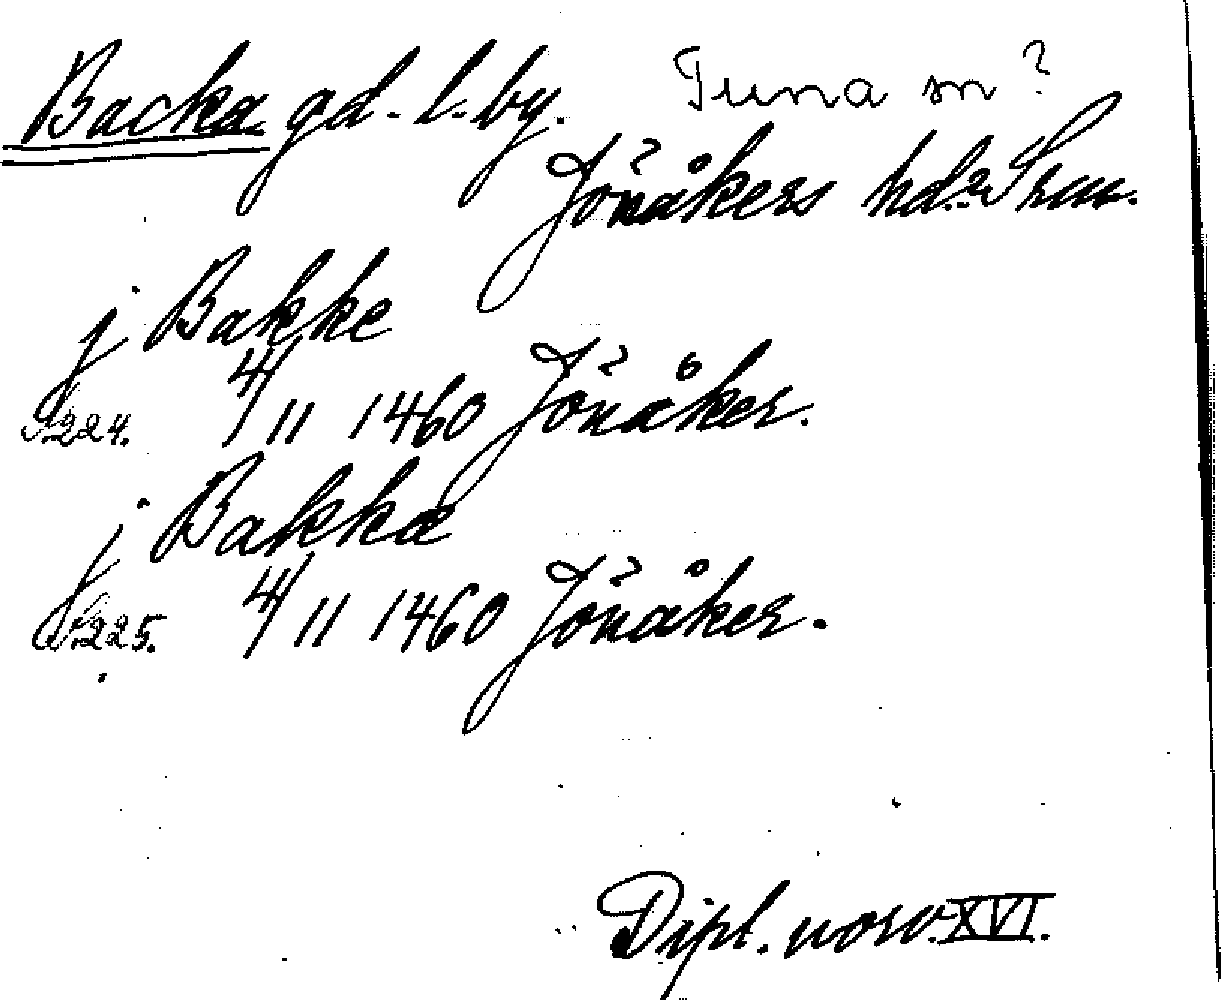 Backa gd. l. by. Tuna sn ?
Jönåkers hd. Srm.
j Bakke
S. 224. 4/11 1460 Jönåker.
j Bakka
S. 225. 4/11 1460 Jönåker.
Dipl. norv. XVI.